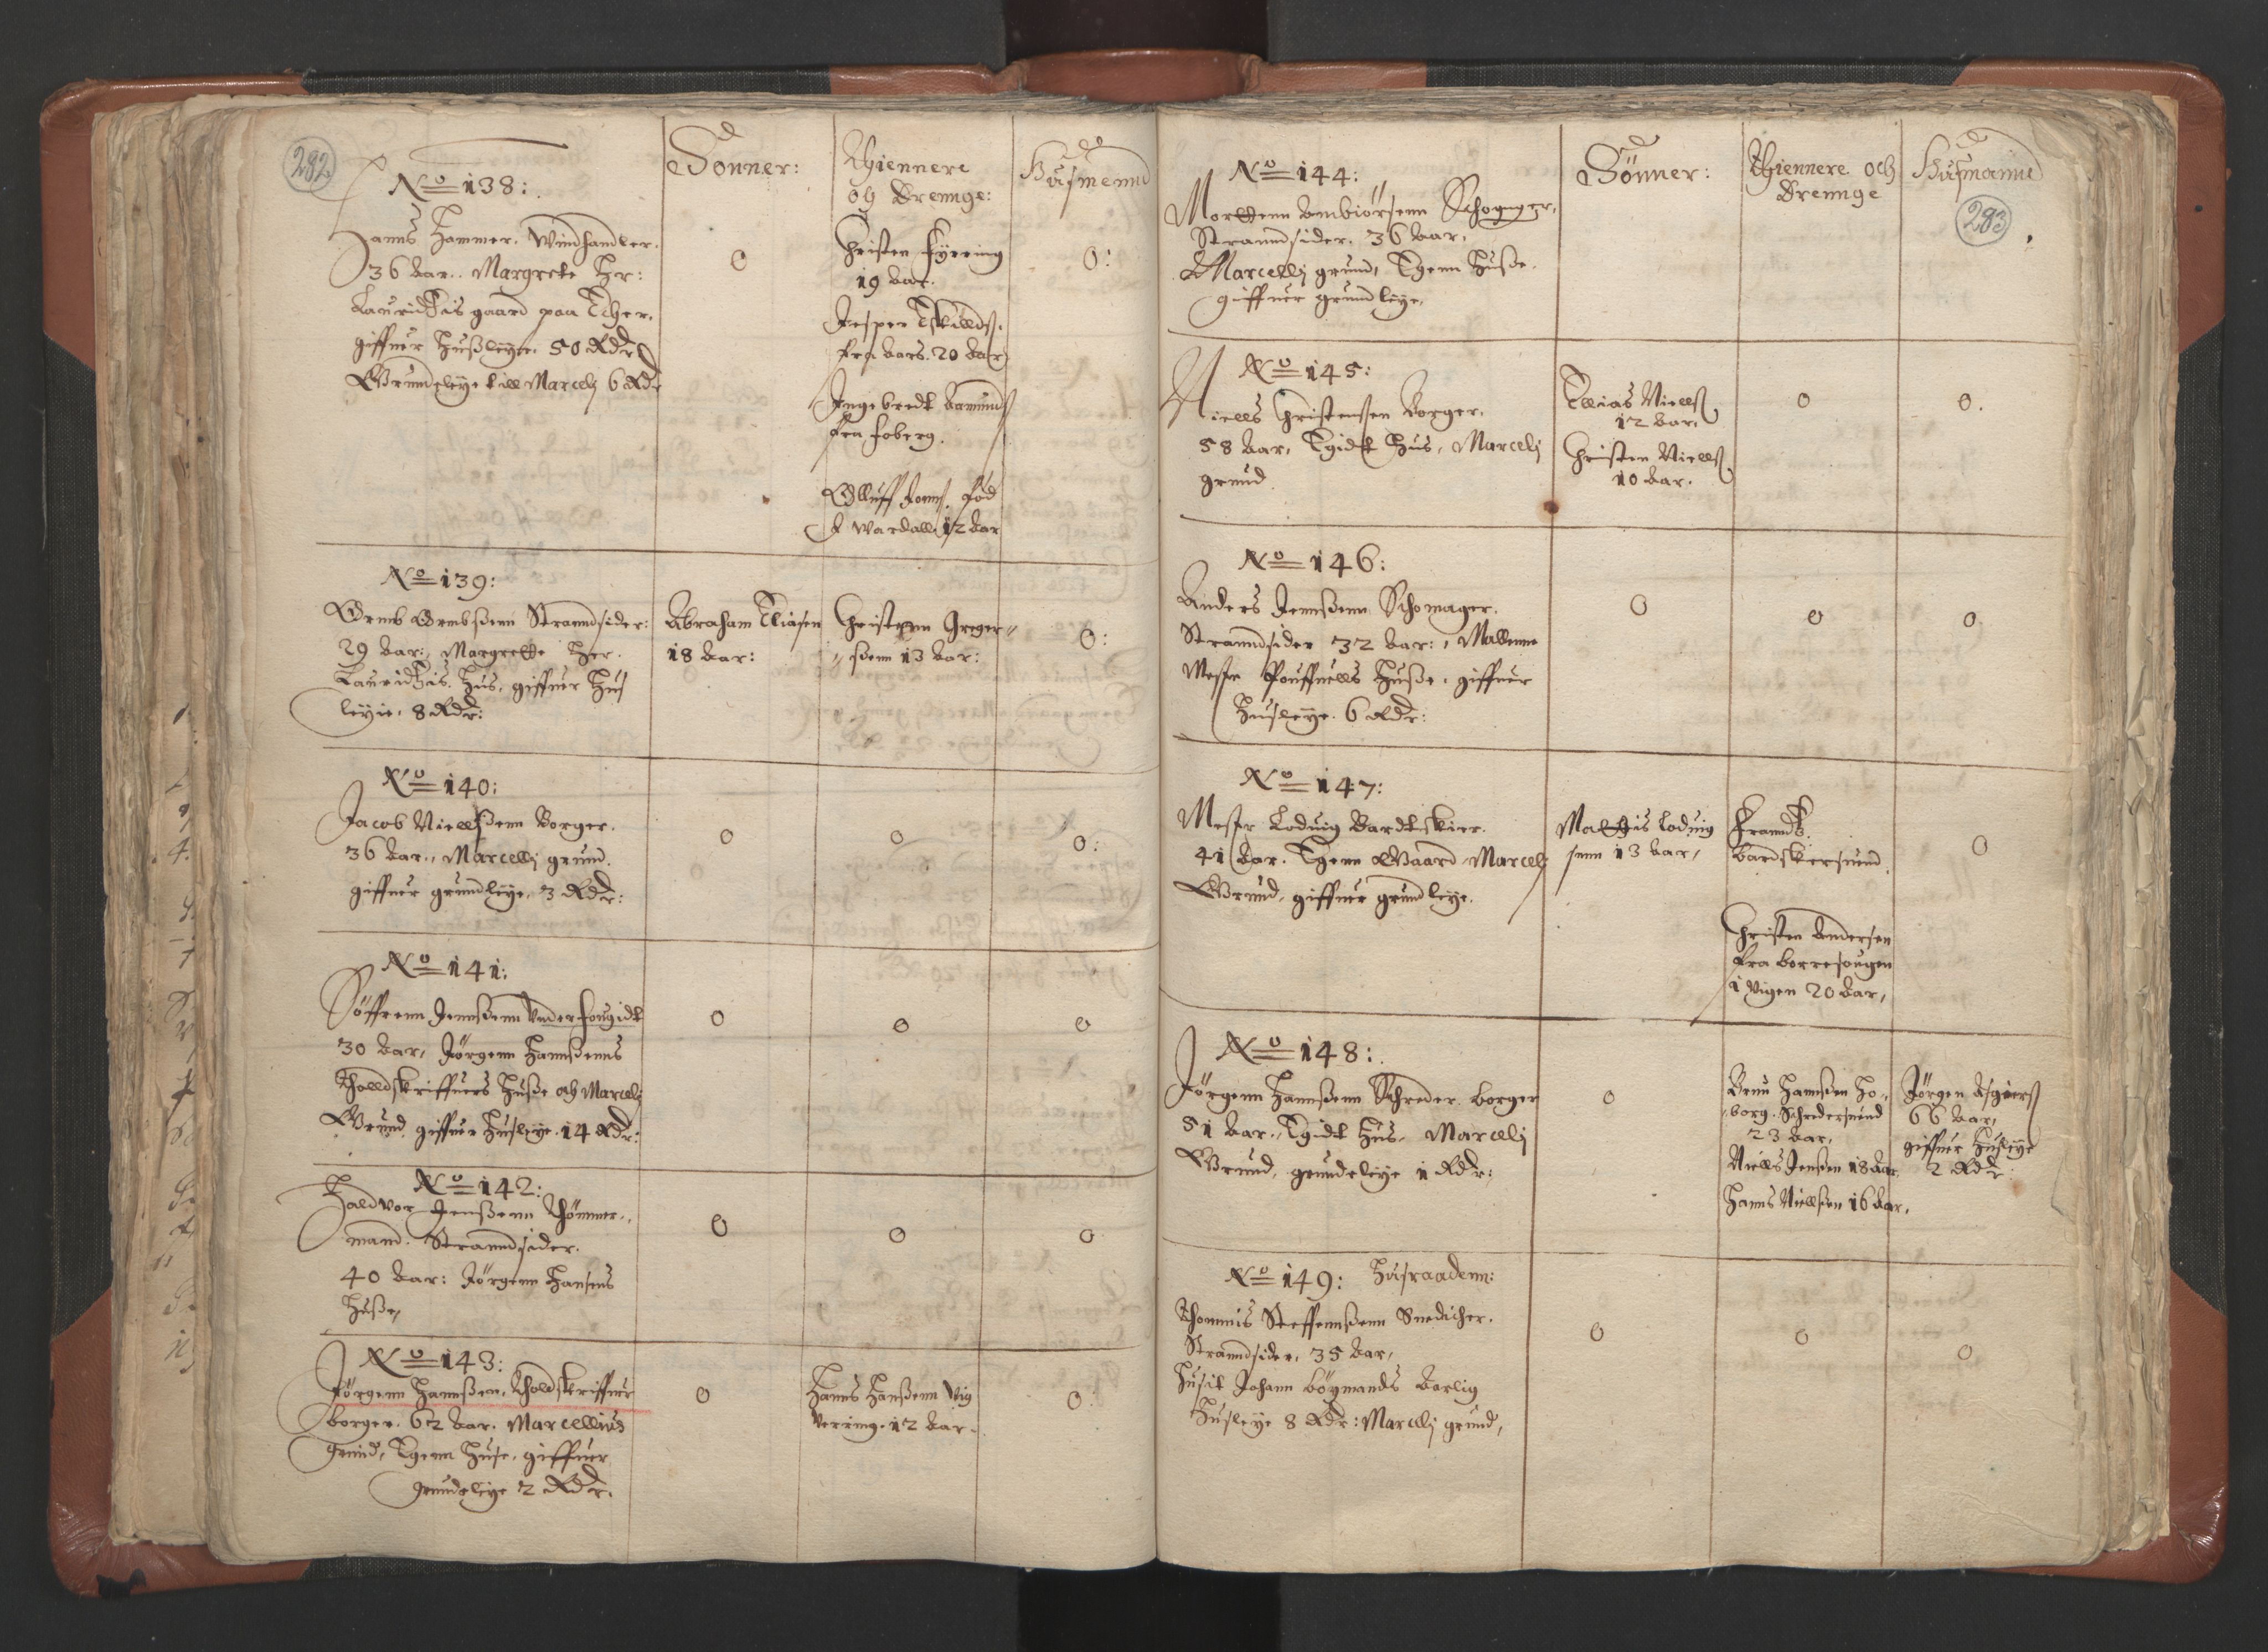 282
No 138:
Sønner:
Thiennere
og Drennge:
Husmennd
Hanns Hammer. Windhandler.
36 Aar. Margrete Hr:
Lauridtzis gaard paa
giffuer Hußleye. 50 Rdr
Grundeleye till Marcelj 6 Rdr
0
Christen Fyrring
19 Aar.
Jesper Eskilds.
fra Aars. 20 Aar
Ingebredt Aamunds
fra Foberg.
Olluff Jenns. Fød
i Wardall 12 Aar
0:
No 139:
Ormb Ormbßenn Stranndsider:
29 Aar: Margrette Her.
Lauridtzis. Hus, giffuer Hus
leyie. 8 Rdr:
Abraham Eliasen
18 Aar:
Christenn Greger"
"ßenn 13 Aar:
0:
No 140:
Jacob Niellsßenn Borger.
36 Aar., Marcellj grund.
giffuer grundleye. 3 Rdr:
0
0
0:
No 141:
Søffrenn Jennßenn Vnderfougidt
30 Aar, Jørgenn Hannßenns
Tholldskriffuers Huße och Marcelj
Grund. giffuer Husleye. 14 Rdr:
0
0
0
No 142:
Haldvor Jennßenn Thømmer,,
mand. Stranndsider.
40 Aar: Jørgenn Hansens
Huße,
0
0
0
No 143:
Jørgenn Hannßen. Tholdskriffuer
borger. 62 Aar. Marcellius
grund, Egenn Huse. giffuer
grundeleye 2 Rdr.
0
Hanns Hanßenn Vig
Verring. 12 Aar.
0:
No 144:
Sønner:
Thiennere och
Drennge
Husmannd
283
Mortenn Ambiørsenn
Stranndsider. 36 Aar,
Marcellj grund, Egenn Huße.
giffuer grundleye,
No 145:
Niells Christensen Borger,
58 Aar, Egidt Hus, Marcelj
grund
Ellias Niells.
12 Aar.
Christen Niells.
10 Aar.
0
0.
No 146:
Anders Jennßenn Schomager.
Stranndsider 32 Aar:, Mallenne
Mester Huße. giffuer
Husleye. 6 Rdr:
0
0
0
No 147:
Mester Loduig Bardtskier.
41 Aar. Egenn Gaard Marcelj
Grund, giffuer grundleye.
Mattis Loduig
senn 13 Aar,
Franndtz.
bardskersuend
Christen Andersen
fra Borresougen
i Vigen 20 Aar,
0
No 148:
Jørgenn Hannßenn Schreder borger
51 Aar., Egidt Hus. Marcelj
Grund, grundeleye 1 Rdr:
0
Hannßen Ho,,
borg. Schredersuend
23 Aar,
Niells Jenßen 18 Aar
Hanns Niellsen 16 Aar,
Jørgen Asgiers
66 Aar,
giffuer Husleye
2 Rdr
No 149: Husraadenn:
Thommis Steffennßenn Snedicher.
Stranndsider, 35 Aar,
Husit Johann Bøgmands Aarlig
Husleye 8 Rdr: Marcelj grund,
0
0
0